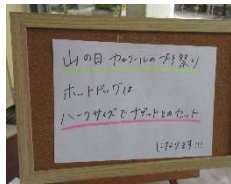 山の日 カルクールのプチ祭り
ホットドッグは
ハーフサイズでナゲットとのセット
になります!!!